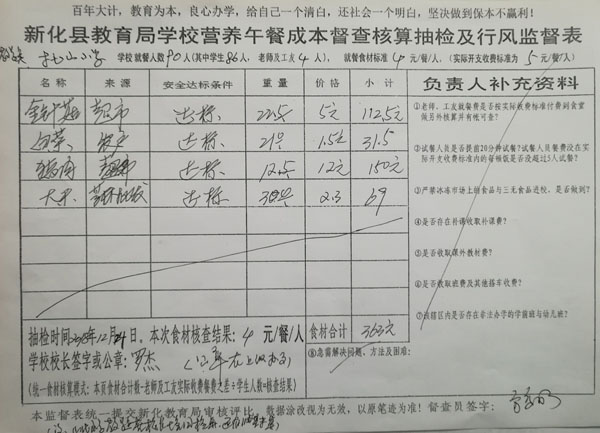 百年大计，教育为本，良心办学，给自己一个清白，还社会一个明白，坚决做到保本不赢利！
新化县教育局学校营养午餐成本督查核算抽检及行风监督表
小学 学校就餐人数90人(其中学生86人，老师及工友4人)，就餐食材标准4元/餐/人，(实际开支收费标准为5元/餐/人)
名称 来源 安全达标条件 重量 价格 小计 负责人补充资料
金针菇 超市 达标 22.5 5元 112.5元
白菜 农户 达标 21斤 1.5元 31.5
超市 达标 12.5 12元 150元
大米 达标 30斤 2.3 69
①老师、工友就餐费是否按实际收费标准付费到食堂做另外核算并有帐可查？
②试餐人员是否提前20分钟试餐？试餐人员餐费没在实际开支收费标准内的每顿饭是否没超过5人试餐？
③严禁冰冻市场上购食品与三无食品进校，是否做到？
④是否存在补课收取补课费？
⑤是否收取课外教材费？
⑥是否教取班费及其他搭车收费？
⑦该辖区内是否存在非法办学的学前班与幼儿班？
抽检时间2018年12月24日。本次食材核查结果：4元/餐/人 食材合计 363元
学校校长签字或公章：罗杰
⑧急需解决问题、方法及困难：
(统一食材核算模式：本页食材合计数-老师及工友实际收费餐费之差÷学生人数=核查结果)
本监督表统一提交新化教育局审核评比，数据涂改视为无效，以原笔迹为准！督查员签字：